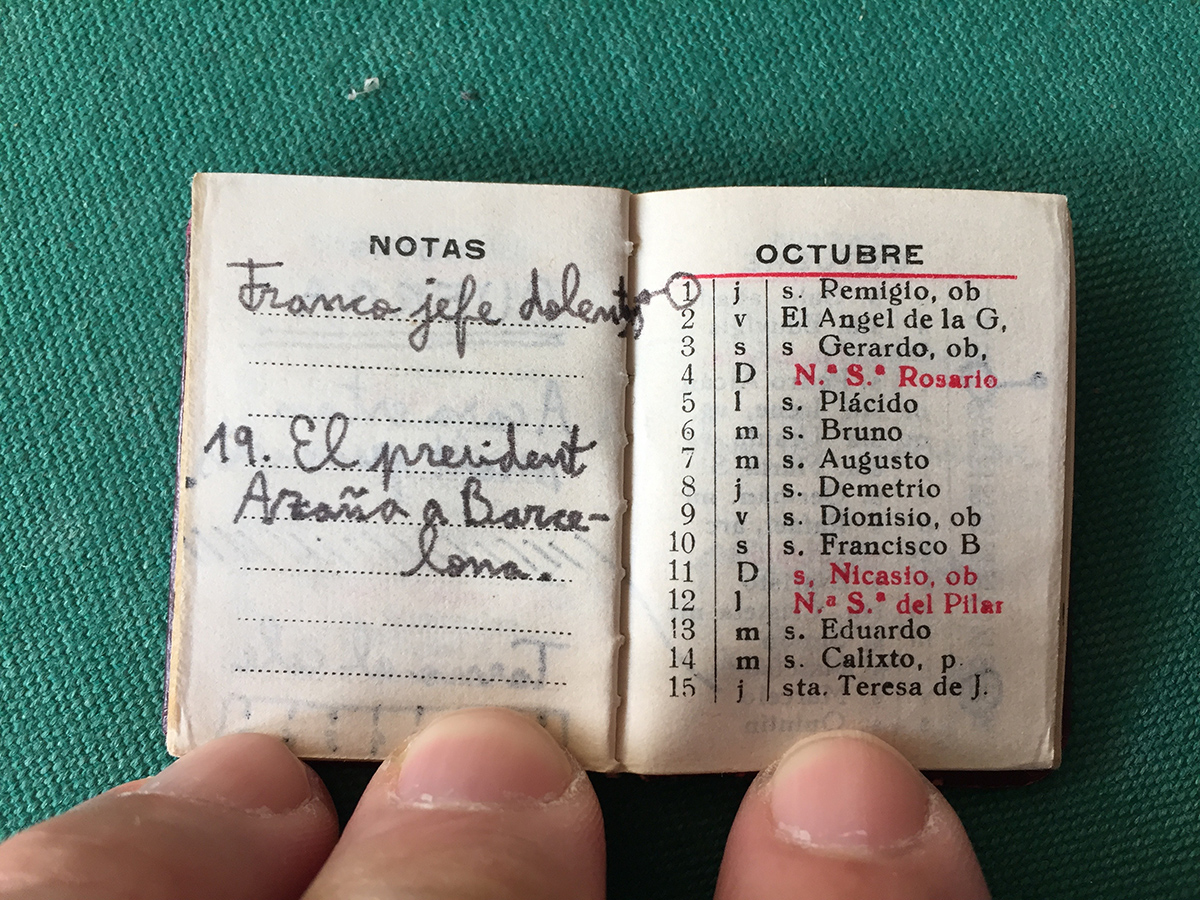 NOTAS
Franco jefe dolent
19. El president
Azaña a Barce-
lona.
OCTUBRE
1 j s. Remigio, ob
2 v El Angel de la G,
3 s s Gerardo, ob,
4 D N.ª S.ª Rosario
5 l s. Plácido
6 m s. Bruno
7 m s. Augusto
8 j s. Demetrio
9 v s. Dionisio, ob
10 s s. Francisco B
11 D s, Nicasio, ob
12 l N.ª S.ª del Pilar
13 m s. Eduardo
14 m s. Calixto, p.
15 j sta. Teresa de J.